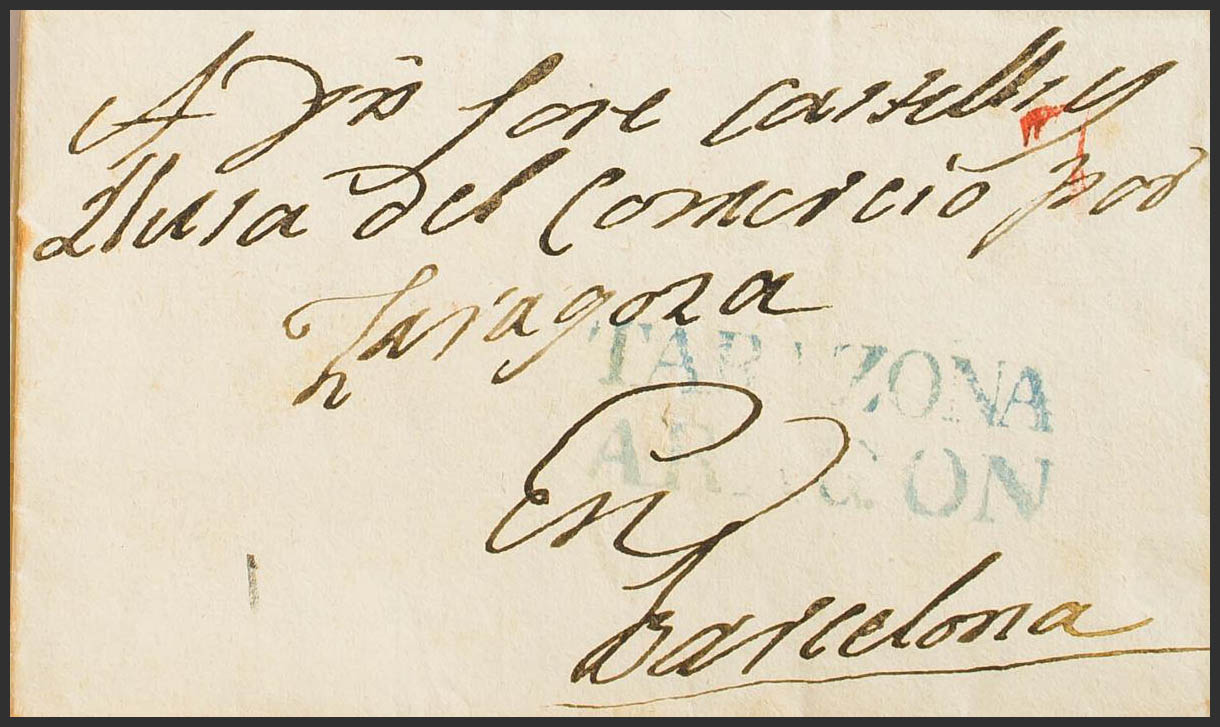 A Dn Jose Carsell y
Llusa del Comercio por
Zaragoza
TARAZONA
ARAGON
En
Barcelona